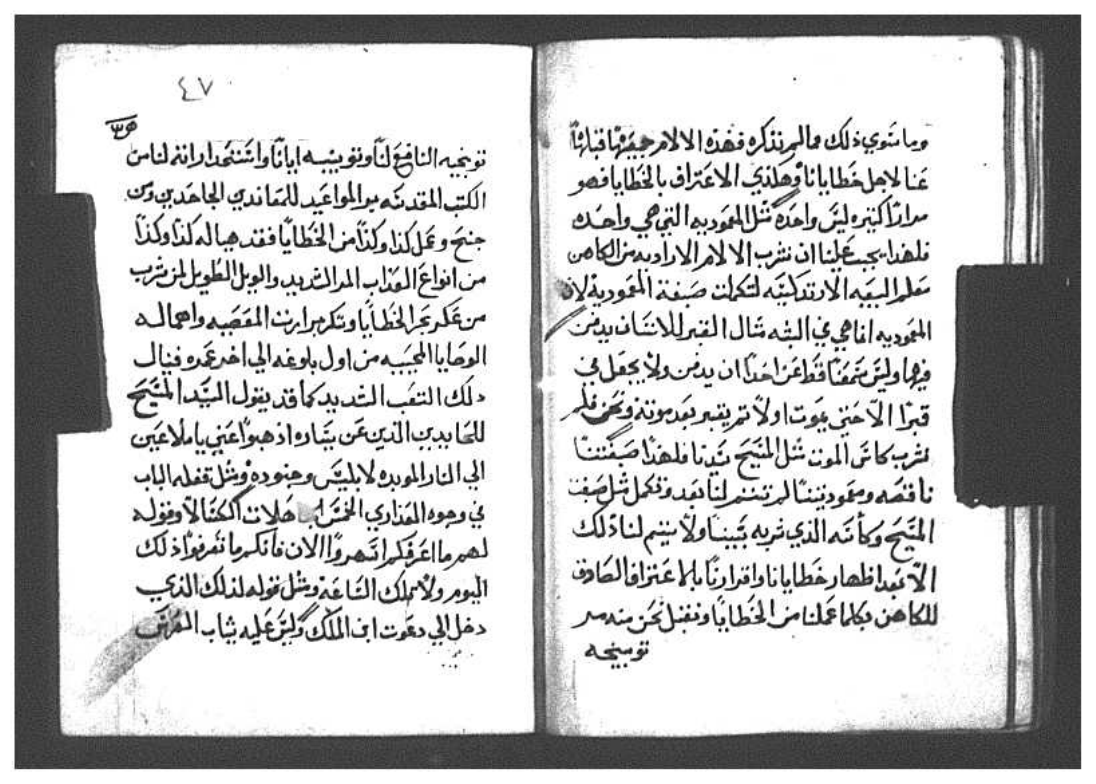 وما سوي ذلك مما لم نذكره فهذه الالام جميعها قبلها
عنا لاجل خطايانا وهكذي الاعتراف بالخطايا فهو
مرارا كثيره ليس واحده مثل المعموديه التي هي واحده
فلهذا يجب علينا ان نشرب الالام الاراديه من الكاهن
معلم البيعه الارتدكسيه لتكملت صبغة المعموديه لان
المعموديه انما هي في الشبه مثال القبر للانسان يدفن
فيها وليس سمعنا قط عن احدا ان يدفن ولا يجعل في
قبرا الا حتي يموت اولا ثم يقبر بعد موته ونحن فلم
نشرب كاس الموت مثل المسيح سيدنا فلهذا صبغتنا
ناقصه ومعموديتنا لم تتم لنا بعد وتكمل مثل صبغت
المسيح وكأسه الذي شربه بسببنا ولا يتم لنا ذلك
الا بعد اظهار خطايانا واقرارنا بالاعتراف الصادق
للكاهن بكلما عملنا من الخطايا ونقبل نحن منه مر
توبيخه
٤٧
توبيخه النافع لنا وتوبيبه ايانا واستنحدارانه لنا من
الكتب المقدسه من المواعيد للمعاندين الجاحدين ومن
جنح وعمل كذا وكذا من الخطايا فقد هيا له كذا وكذا
من انواع العذاب المر الشديد والويل الطويل لمن شرب
من عكر بحر الخطايا وتكرم برارت المعصيه واهماله
الوصايا المحييه من اول بلوغه الي اخر عمره فينال
ذلك التعب الشديد كما قد يقول السيد المسيح
للحايدين الذين عن يساره اذهبوا عني يا ملاعين
الي النار الموبده لابليس وجنوده ومثل قفله الباب
في وجوه العذاري الخمس الجاهلات الكسالا وقوله
لهم ما اعرفكم اسهروا الان فانكم ما تعرفوا ذلك
اليوم ولا تملك الساعه ومثل قوله لذلك الذي
دخل الي دعوت ابن الملك وليس عليه ثياب العرس